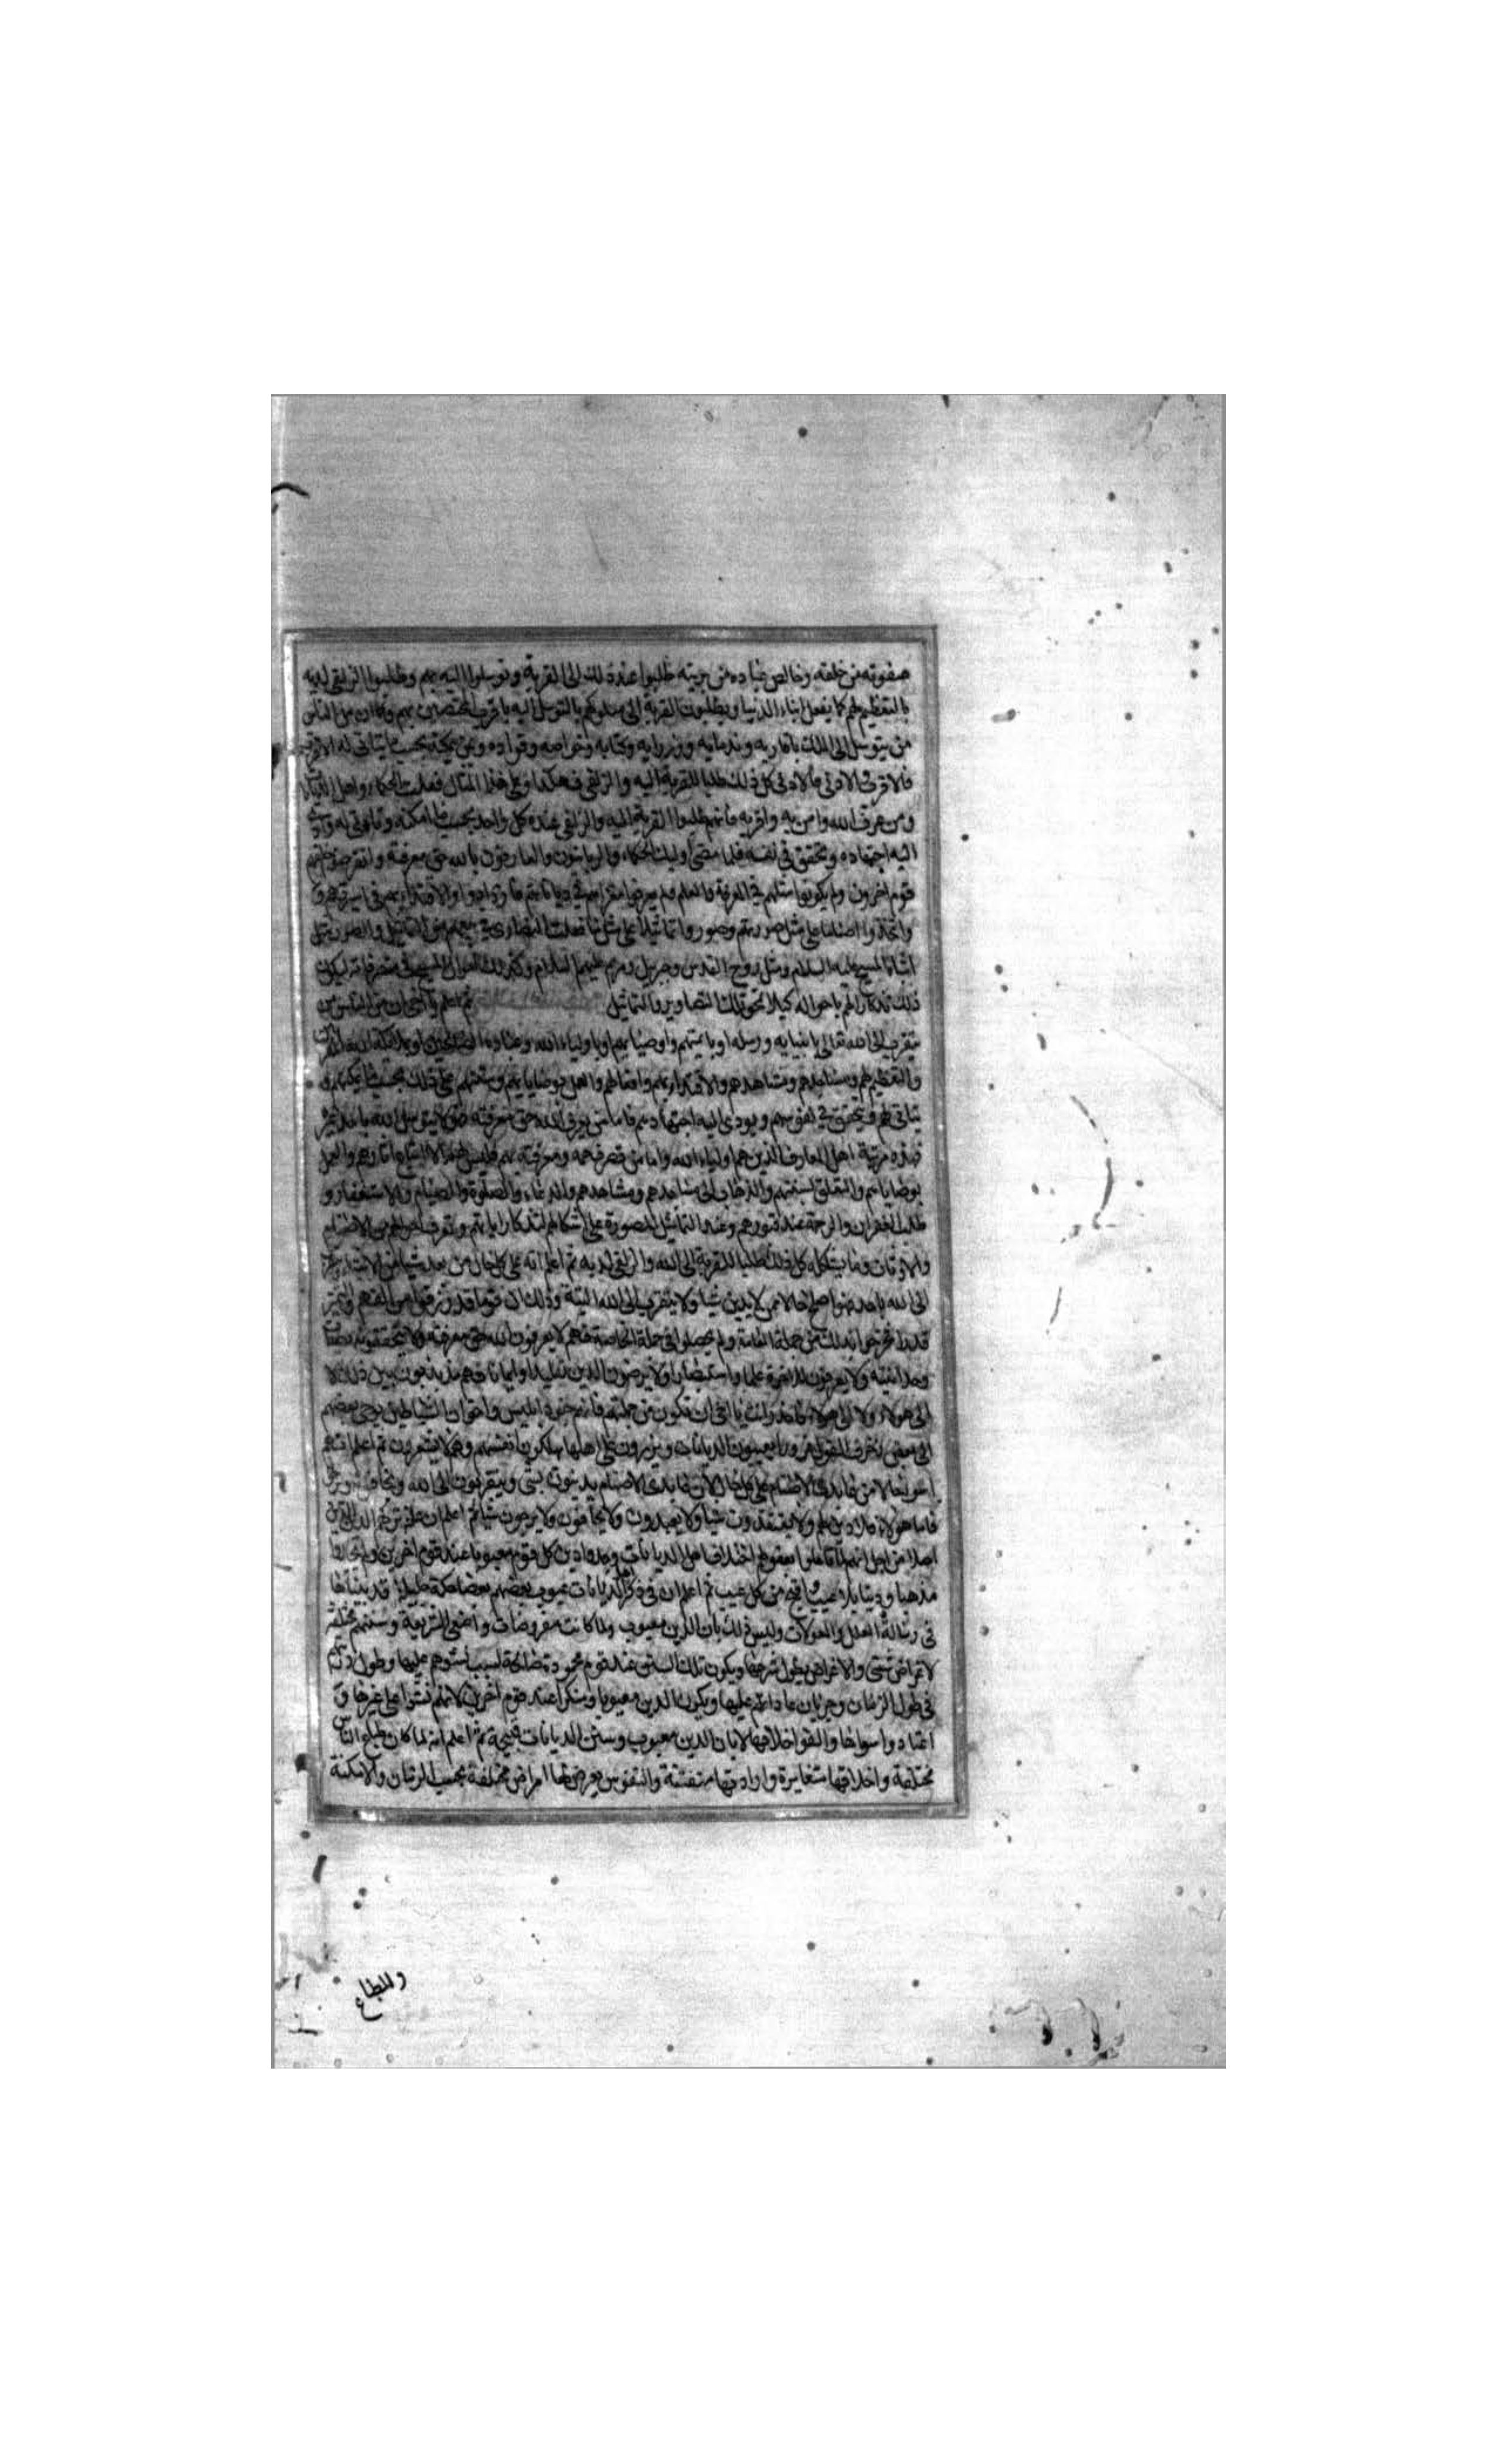 صفوته من خلقه وخالص عباده من بريته طلبوا عند ذلك الى القربة و توسلوا اليه بهم وطلبوا الزلفى لديه
بالتعظيم لهم كما يفعل ابناء الدنيا ويطلبون القربة الى ملوكهم بالتوسل اليه باقرب المختصين بهم وكان من الناس
من يتوسل الى الملك باقاربه وندمايه ووزرايه وكتابه وخواصه وقواده وبمن يمكنه بحسب ما يتاتى له الاقرب
فالاقرب والادنى فالادنى كل ذلك طلبا للقربة اليه والزلفى فهكذا وعلى هذا المثال فعلت الحكماء واهل الديانات
ومن عرف الله وامن به واقر به فانهم طلبوا القربة اليه والزلفى عنده كل واحد بحسب ما امكنه وتاتى له وادى
اليه اجتهاده وتحقق في نفسه فلما مضى اوليك الحكماء والربانيون والعارفون بالله حق معرفته وانقرضوا خلفهم
قوم اخرون ولم يكونوا مثلهم في المعرفة والعلم فلم يعرفوا مغزاهم في دياناتهم فارادوا الاقتداء بهم في سيرتهم
واتخذوا اصناما على مثل صورتهم وصوروا تماثيلا على مثل ما فعلت النصارى في بيعهم من التماثيل والصور
المسيح عليه السلام ومثل روح القدس وجبريل ومريم عليهم السلام وكذلك احوال المسيح في متصرفاته ليكون
ذلك تذكارا لهم باحواله كيلا تمحو تلك التصاوير والتماثيل ثم اعلم يا اخى ان من الناس من
يتقرب الى الله تعالى بانبيايه ورسله او بايمتهم واوصيايهم او باولياء الله وعباده الصالحين او بملايكة الله المقربين
والتعظيم لهم ومساجدهم ومشاهدهم والاقتداء بهم وافعالهم والعمل بوصاياهم وسننهم على ذلك بحسب ما يمكنهم و
يتاتى لهم ويتحقق في نفوسهم ويودى اليه اجتهادهم فاما من يعرف الله حق معرفته فهو لا يتوسل اليه باحد غيره
فهذه مرتبة اهل المعارف الذين هم اولياء الله واما من قصر فهمه ومعرفته بهم فليس له الا اتباع اثارهم والعمل
بوصاياهم والتعلق بسنتهم والذهاب الى مساجدهم ومشاهدهم والدعاء والصلوة والصيام والاستغفار و
طلب الغفران والرحمة عند قبورهم وعند التماثيل المصورة على اشكالهم لتذكار اياتهم وتعرف احوالهم من الاصنام
والاوثان وما يشاكله كل ذلك طلبا للقربة الى الله والزلفى لديه ثم اعلم انه على كل حال من يعبد شيا من الاشياء
الى الله باحد فهو اصلح حالا ممن لا يدين شيا ولا يتقرب الى الله البتة وذلك ان قوما قد رزقوا من الفهم والتميز
قدرا خرجوا بذلك من جملة العامة ولم يحصلوا في جملة الخاصة فهم لا يعرفون الله حق معرفته ولا يتحققونه
وحدانيته ولا يعرفون الاخرة علما واستبصارا ولا يرضون الدين تقليدا وايمانا فهم مذبذبون بين ذلك لا
الى هولاء ولا الى هولاء فاحذر انت يا اخى ان تكون من جملتهم فانهم جنود ابليس واخوان الشياطين يوحى بعضهم
الى بعض زخرف القول غرورا يعيبون الديانات ويزرون على اهلها يهلكون انفسهم وهم لا يشعرون ثم اعلم
اسوا حالا من عابدى الاصنام على كل حال لان عابدى الاصنام يدينون بشى ويتقربون الى الله ويخافون
فاما هولاء فلا دين لهم ولا يعتقدون شيا ولا يعبدون ولا يخافون ولا يرجون شيا ثم اعلم ان علة تركهم الدين
اصلا من اجل انهم لما تاملوا بعقولهم اختلاف اهل الديانات وجدوا دين كل قوم معيوبا عند قوم اخرين ولم يجدوا
مذهبا ودينا بلا عيب واقبح من كل عيب ثم اعلم ان في ذكر اهل الديانات عيوب بعضهم بعضا حكمة جليلة قد بيناها
في رسالة العلل والمعولات وليس ذلك بان الدين معيوب ولما كانت مفروضات واضعى الشريعة وسننهم مختلفة
لاغراض شتى والاغراض يطول شرحها ويكون تلك السنن عند قوم محمودة صالحة لسبب نشوهم عليها وطول
في طول الزمان وجريان عاداتهم عليها ويكون الدين معيوبا ومنكرا عند قوم اخرين لانهم نشوا على غيرها و
اعتادوا سواها والفوا خلافها لا بان الدين معيوب وسنن الديانات قبيحة ثم اعلم انه لما كان طباع الناس
مختلفة واخلاقها متغايرة وارادتها متفننة والنفوس يعرض لها امراض مختلفة بحسب الزمان والامكنة
والطباع